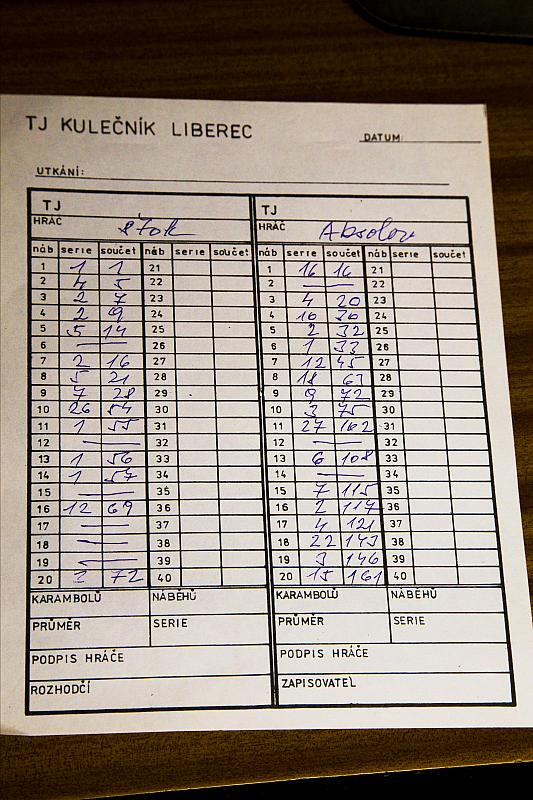 TJ KULEČNÍK LIBEREC
DATUM:
UTKÁNÍ:
TJ TJ
HRÁČ HRÁČ Absolon
náb serie součet náb serie součet náb serie součet náb serie součet
1 1 1 21 1 16 16 21
2 4 5 22 2 — 22
3 2 7 23 3 4 20 23
4 2 9 24 4 10 30 24
5 5 14 25 5 2 32 25
6 — 26 6 1 33 26
7 2 16 27 7 12 45 27
8 5 21 28 8 18 63 28
9 7 28 29 9 9 72 29
10 26 54 30 10 3 75 30
11 1 55 31 11 27 102 31
12 — 32 12 — 32
13 1 56 33 13 6 108 33
14 1 57 34 14 — 34
15 — 35 15 7 115 35
16 12 69 36 16 2 117 36
17 — 37 17 4 121 37
18 — 38 18 22 143 38
19 — 39 19 3 146 39
20 3 72 40 20 15 161 40
KARAMBOLŮ NÁBĚHŮ KARAMBOLŮ NÁBĚHŮ
PRŮMĚR SERIE PRŮMĚR SERIE
PODPIS HRÁČE PODPIS HRÁČE
ROZHODČÍ ZAPISOVATEL